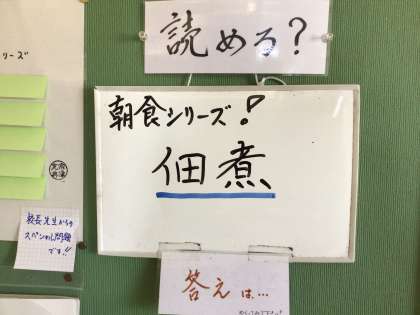 読めろ?
朝食シリーズ!
佃煮
答えは…
リーズ
校長先生からの
スペシャル問題
です!!